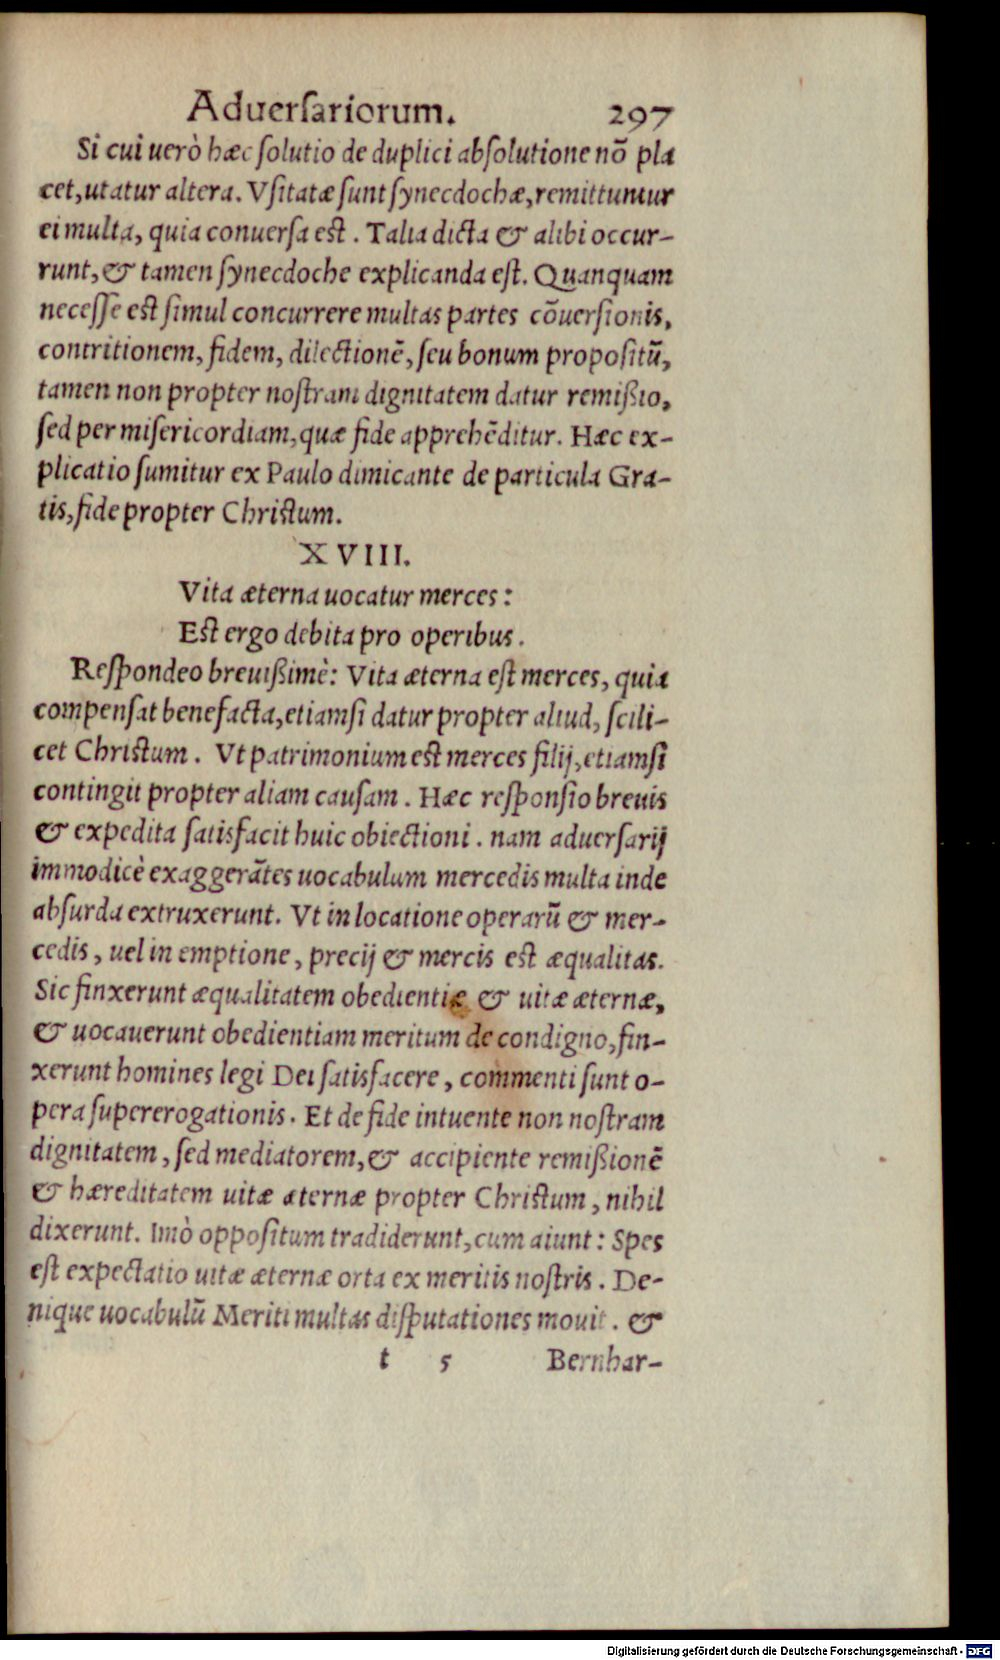 Aduerſariorum. 297
Si cui uerò hæc ſolutio de duplici abſolutione nõ pla
cet, utatur altera. Vſitatæ ſunt ſynecdochæ, remittuntur
ei multa, quia conuerſa eſt. Talia dicta & alibi occur-
runt, & tamen ſynecdoche explicanda eſt. Quanquam
neceſſe eſt ſimul concurrere multas partes cõuerſionis,
contritionem, fidem, dilectionẽ, ſeu bonum propoſitũ,
tamen non propter noſtram dignitatem datur remißio,
ſed per miſericordiam, quæ fide apprehẽditur. Hæc ex-
plicatio ſumitur ex Paulo dimicante de particula Gra-
tis, fide propter Chriſtum.
XVIII.
Vita æterna uocatur merces:
Eſt ergo debita pro operibus.
Reſpondeo breuißimè: Vita æterna eſt merces, quia
compenſat benefacta, etiamſi datur propter aliud, ſcili-
cet Chriſtum. Vt patrimonium eſt merces filij, etiamſi
contingit propter aliam cauſam. Hæc reſponſio breuis
& expedita ſatisfacit huic obiectioni. nam aduerſarij
immodicè exaggerãtes uocabulum mercedis multa inde
abſurda extruxerunt. Vt in locatione operarũ & mer-
cedis, uel in emptione, precij & mercis eſt æqualitas.
Sic finxerunt æqualitatem obedientiæ & uitæ æternæ,
& uocauerunt obedientiam meritum de condigno, fin-
xerunt homines legi Dei ſatisfacere, commenti ſunt o-
pera ſupererogationis. Et de fide intuente non noſtram
dignitatem, ſed mediatorem, & accipiente remißionẽ
& hæreditatem uitæ æternæ propter Chriſtum, nihil
dixerunt. Imò oppoſitum tradiderunt, cum aiunt: Spes
eſt expectatio uitæ æternæ orta ex meritis noſtris. De-
nique uocabulũ Meriti multas diſputationes mouit. &
t 5 Bernhar-
Digitalisierung gefördert durch die Deutsche Forschungsgemeinschaft - DFG